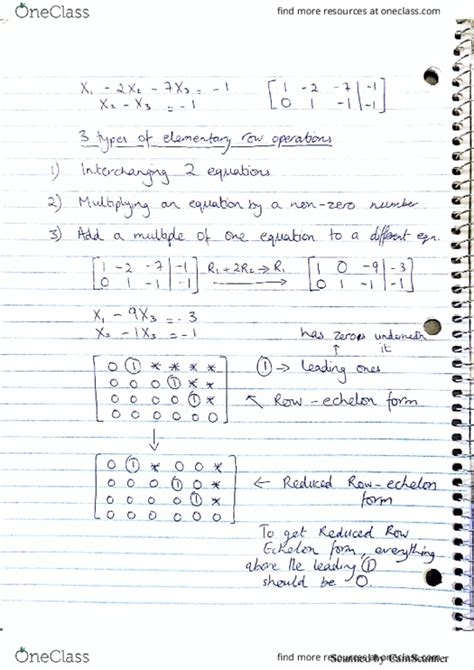 OneClass
find more resources at oneclass.com
x₁ - 2x₂ - 7x₃ = -1 [1 -2 -7 | -1]
x₂ - x₃ = -1 [0 1 -1 | -1]
3 types of elementary row operations
1) Interchanging 2 equations
2) Multiplying an equation by a non-zero number
3) Add a multiple of one equation to a different eqn.
[1 -2 -7 | -1] R₁+2R₂→R₁ [1 0 -9 | -3]
[0 1 -1 | -1] [0 1 -1 | -1]
x₁ - 9x₃ = -3
x₂ - 1x₃ = -1
has zeros underneath it
0 ① * * * * ① → leading ones
0 0 0 ① * *
0 0 0 0 ① * ← Row-echelon form
0 0 0 0 0 0
↓
0 ① * 0 0 *
0 0 0 ① 0 * ← Reduced Row-echelon form
0 0 0 0 ① *
0 0 0 0 0 0
To get Reduced Row
Echelon form, everything
above the leading ①
should be 0.
OneClass
find more resources at oneclass.com
Scanned by CamScanner